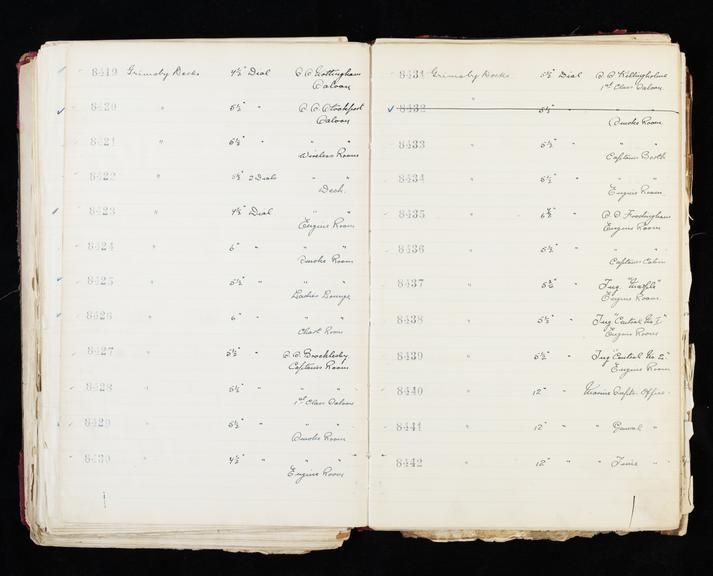 8419 Grimsby Docks 4½" Dial S.S. Nottingham
Saloon
8420 " 5½" " S.S. Stockport
Saloon
8421 " 5½" " " "
Wireless Room
8422 " 5½" 2 Dials " "
Deck.
8423 " 4½" Dial " "
Engine Room
8424 " 6" " " "
Smoke Room
8425 " 5½" " " "
Ladies Lounge
8426 " 6" " " "
Chart Room
8427 " 5½" " S.S. Brocklesby
Captains Room
8428 " 5½" " " "
1st Class Saloon
8429 " 5½" " " "
Smoke Room
8430 " 4½" " " "
Engine Room
8431 Grimsby Docks 5½" Dial S.S. Killingholme
1st Class Saloon
8432 " 5½" " " "
Smoke Room
8433 " 5½" " " "
Captains Berth
8434 " 5½" " " "
Engine Room
8435 " " S.S. Frodingham
Engine Room
8436 " 5½" " " "
Captains Cabin
8437 " 5½" " Tug
Engine Room
8438 " 5½" " Tug "Central No 1"
Engine Room
8439 " 5½" " Tug "Central No 2"
Engine Room
8440 " 12" " Marine Capts. Office
8441 " 12" " " General "
8442 " 12" " " Time "